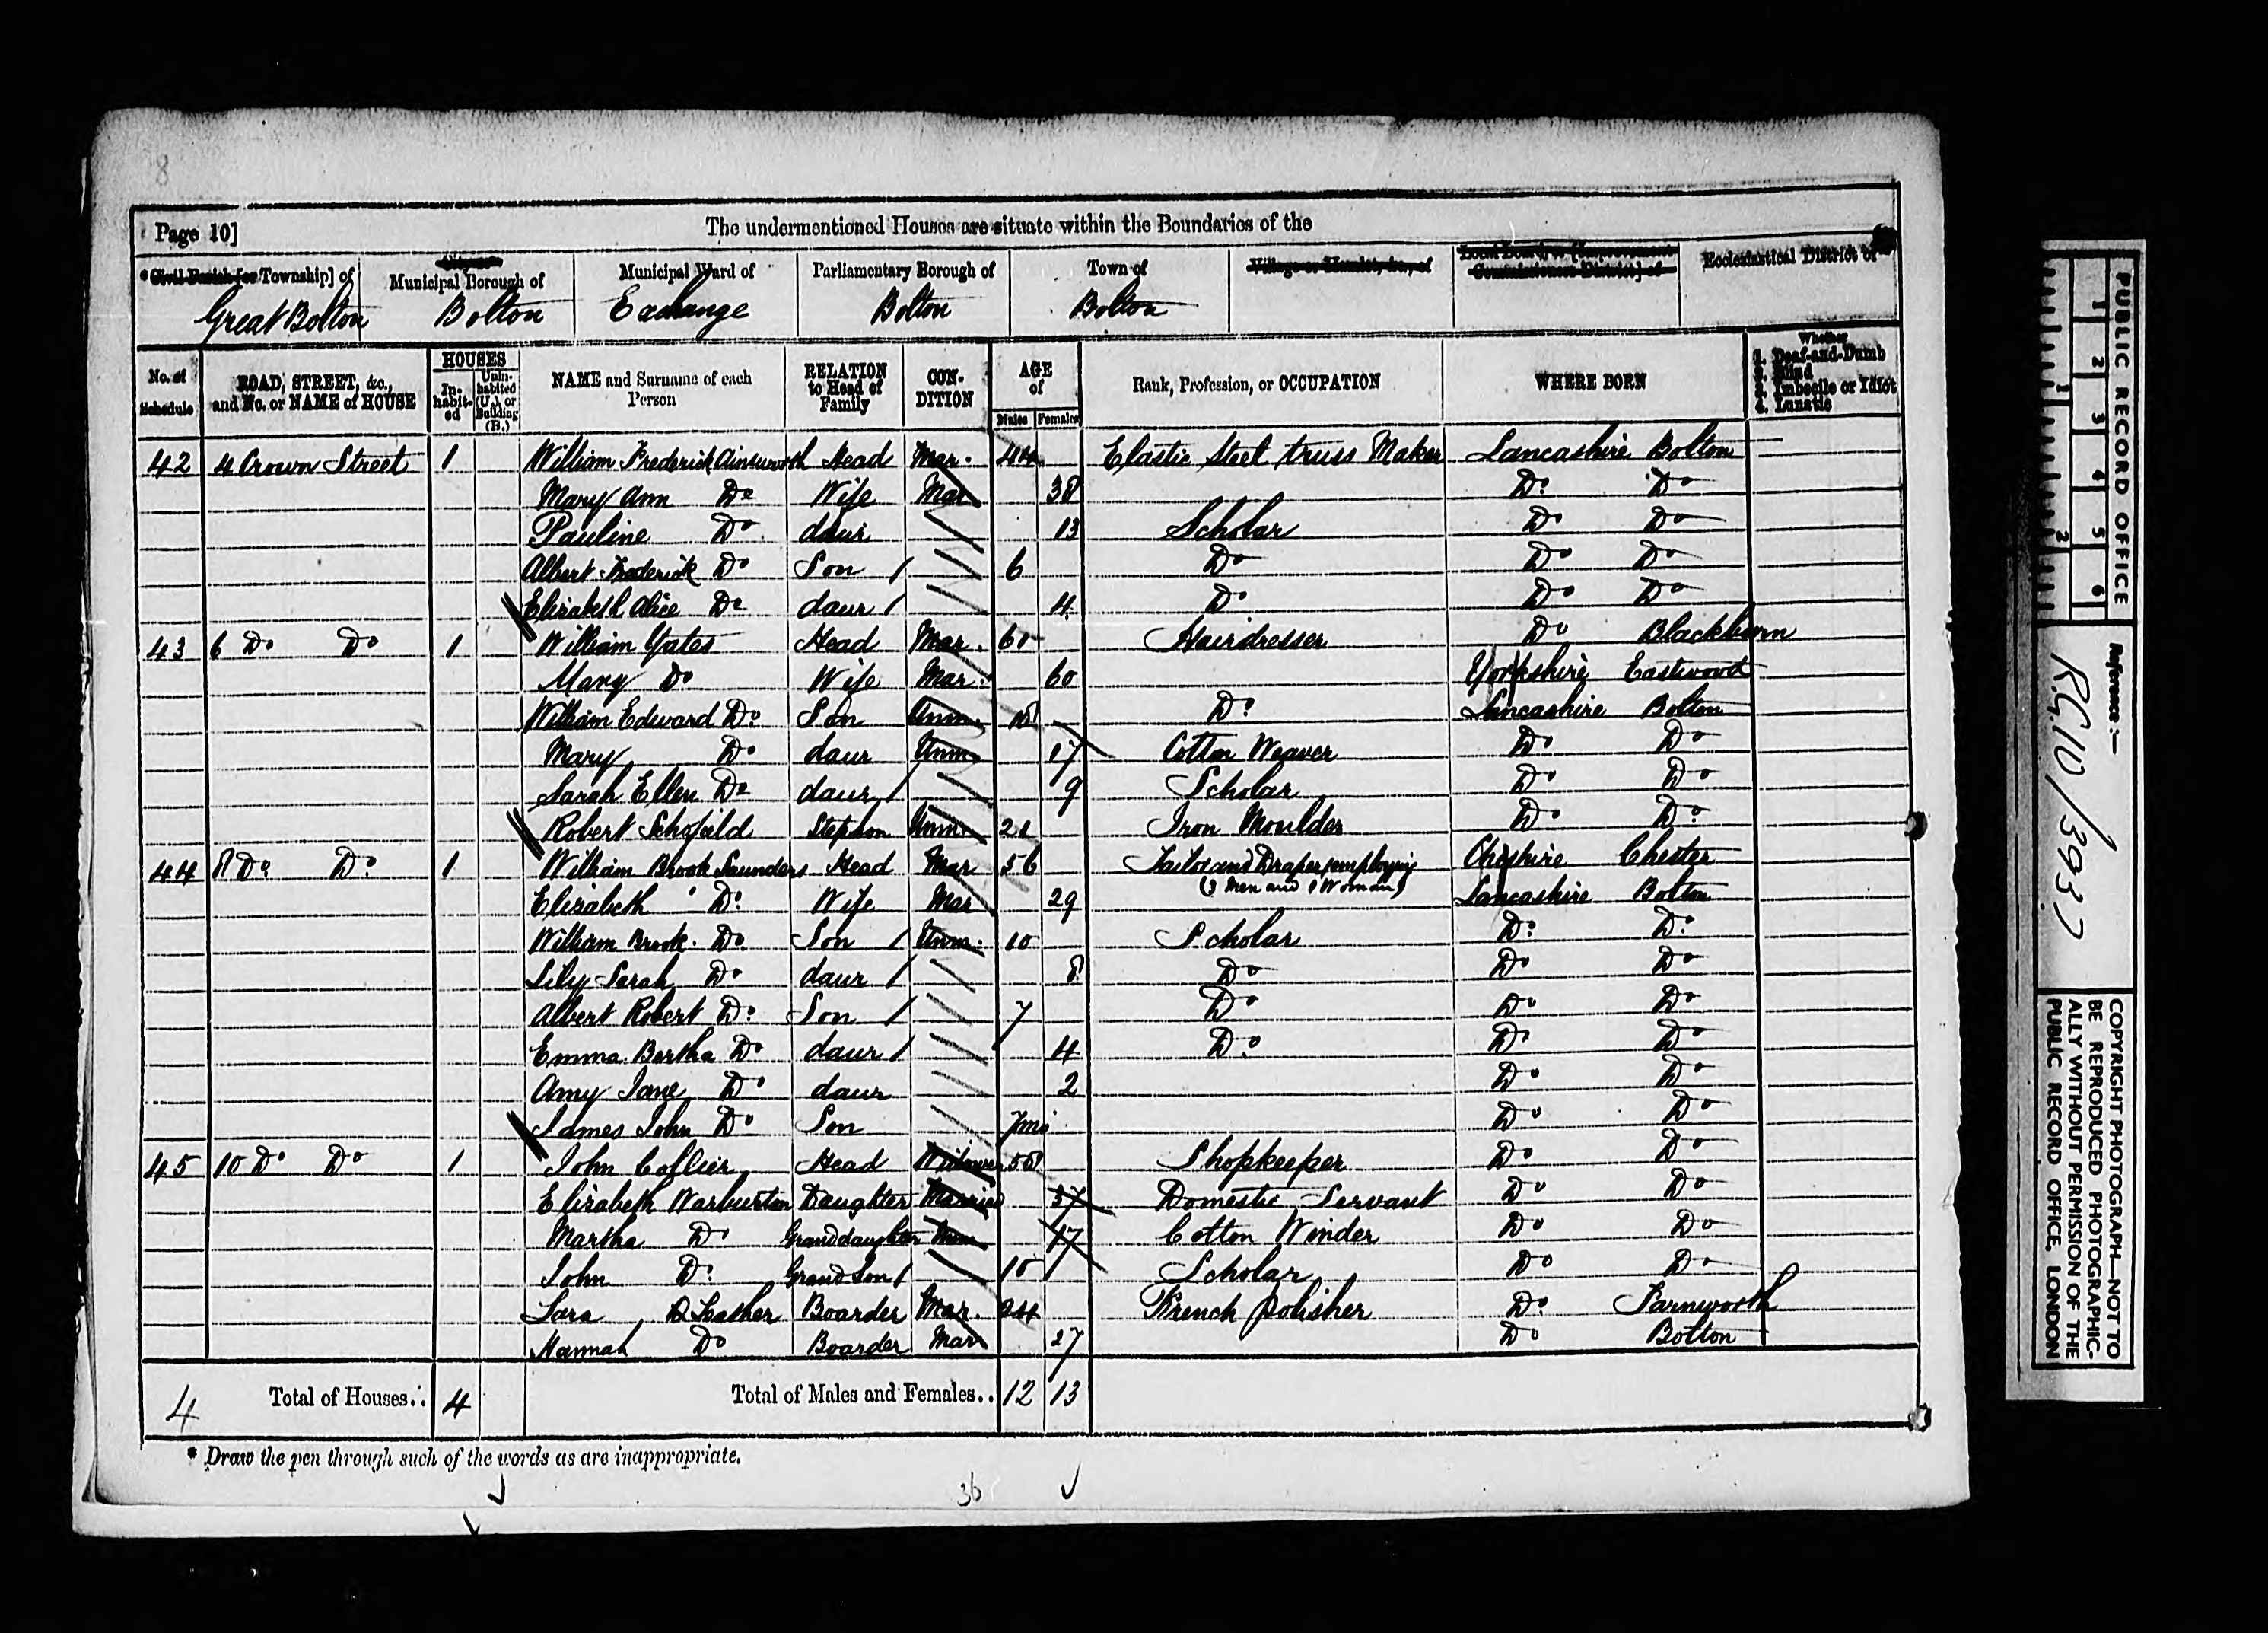 8
Page 10]
The undermentioned Houses are situate within the Boundaries of the
* Civil Parish [or Township] of
Municipal Borough of
Municipal Ward of
Parliamentary Borough of
Town of
Village or Hamlet, &c., of
Local Board, or [Improvement Commissioners District] of
Ecclesiastical District of
Great Bolton Bolton Exchange Bolton Bolton
No. of Schedule
ROAD, STREET, &c., and No. or NAME of HOUSE
HOUSES
In-habit-ed
Unin-habited (U.), or Building (B.)
NAME and Surname of each Person
RELATION to Head of Family
CON-DITION
AGE of
Males Females
Rank, Profession, or OCCUPATION
WHERE BORN
Whether
1. Deaf-and-Dumb
2. Blind
3. Imbecile or Idiot
4. Lunatic
42 4 Crown Street 1 William Frederick Ainsworth Head Mar. 44 Elastic Steel truss Maker Lancashire Bolton
Mary Ann Do Wife Mar 38 Do Do
Pauline Do daur 13 Scholar Do Do
Albert Frederick Do Son 6 Do Do Do
Elizabeth Alice Do daur 4 Do Do Do
43 6 Do Do 1 William Yates Head Mar. 60 Hairdresser Do Blackburn
Mary Do Wife Mar. 60 Yorkshire Eastwood
William Edward Do Son Unm. 18 Do Lancashire Bolton
Mary Do daur Unm 17 Cotton Weaver Do Do
Sarah Ellen Do daur 9 Scholar Do Do
Robert Schofield Stepson Unm. 21 Iron Moulder Do Do
44 8 Do Do 1 William Brook Saunders Head Mar 36 Tailor and Draper employing Cheshire Chester
(3 Men and 1 Woman)
Elizabeth Do Wife Mar 29 Lancashire Bolton
William Brook. Do Son Unm. 10 Scholar Do Do
Lily Sarah Do daur 8 Do Do Do
Albert Robert Do Son 7 Do Do Do
Emma Bertha Do daur 4 Do Do Do
Amy Jane Do daur 2 Do Do
James John Do Son 7mo Do Do
45 10 Do Do 1 John Collier Head Widower 58 Shopkeeper Do Do
Elizabeth Warburton Daughter Married 37 Domestic Servant Do Do
Martha Do Granddaughter Unm 17 Cotton Winder Do Do
John Do Grandson 10 Scholar Do Do
Leather Boarder Mar. 24 French polisher Do Farnworth
Hannah Do Boarder Mar 27 Do Bolton
4 Total of Houses.. 4 Total of Males and Females.. 12 13
* Draw the pen through such of the words as are inappropriate.
36
PUBLIC RECORD OFFICE
1 2 3 4 5 6
1 2
Reference :—
R.G. 10 / 3937
COPYRIGHT PHOTOGRAPH—NOT TO
BE REPRODUCED PHOTOGRAPHIC-
ALLY WITHOUT PERMISSION OF THE
PUBLIC RECORD OFFICE, LONDON